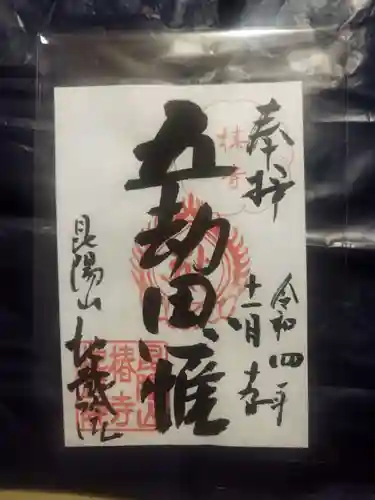 奉拝
令和四年
十一月
椿寺
五劫思惟
昆陽山
地蔵院
椿寺